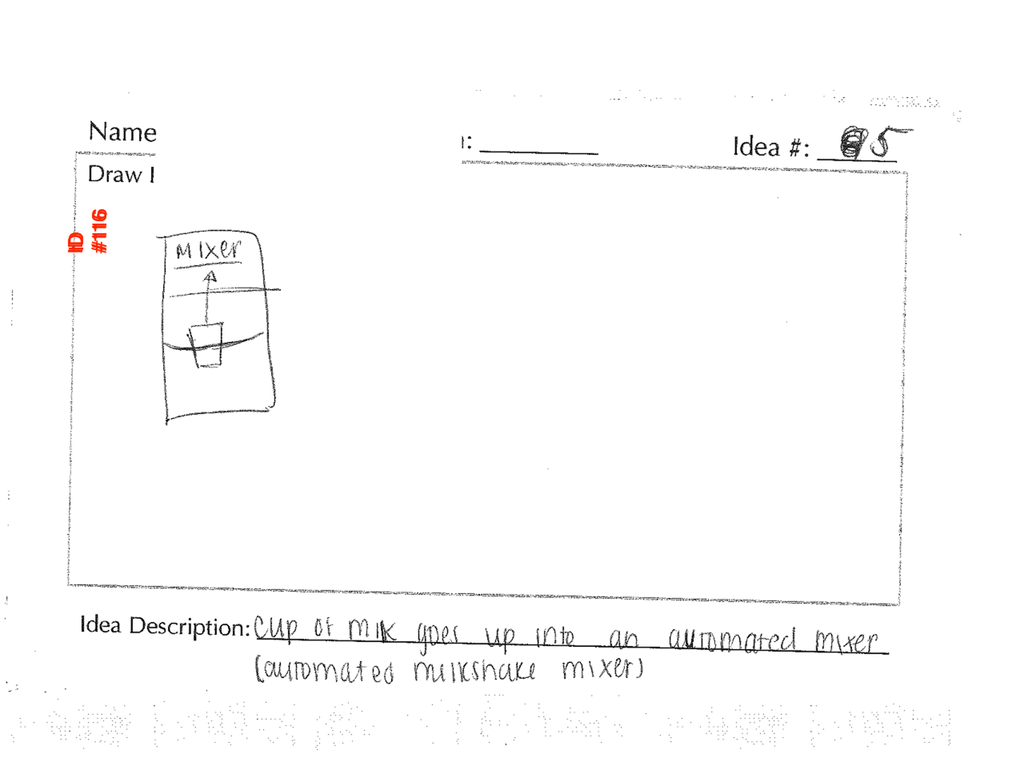 Name
ı:
Idea #: 5
Draw I
ID
#116
MIXER
Idea Description: Cup of milk goes up into an automated mixer
(automated milkshake mixer)